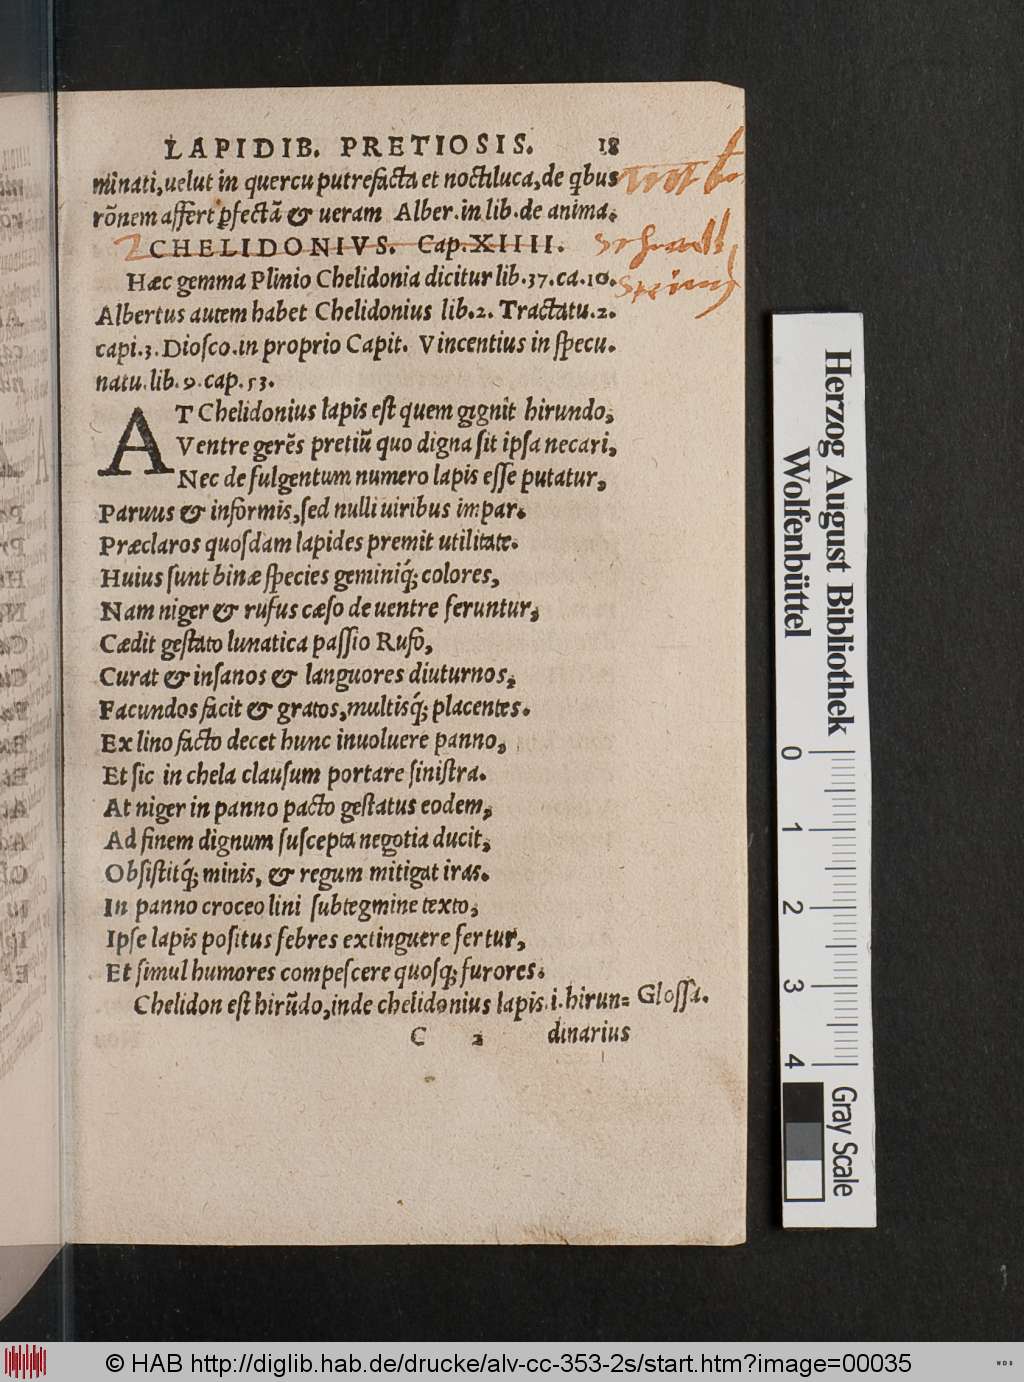 LAPIDIB. PRETIOSIS. 18
minati, uelut in quercu putrefacta et noctiluca, de qbus
rõnem affert pfectã & ueram Alber. in lib. de anima.
CHELIDONIVS. Cap. XIIII.
Hæc gemma Plinio Chelidonia dicitur lib. 37. ca. 10.
Albertus autem habet Chelidonius lib. 2. Tractatu. 2.
capi. 3. Dioſco. in proprio Capit. Vincentius in ſpecu.
natu. lib. 9. cap. 53.
AT Chelidonius lapis eſt quem gignit hirundo,
Ventre gerẽs pretiũ quo digna ſit ipſa necari,
Nec de fulgentum numero lapis eſſe putatur,
Paruus & informis, ſed nulli uiribus impar.
Præclaros quoſdam lapides premit utilitate.
Huius ſunt binæ ſpecies geminiq́; colores,
Nam niger & rufus cæſo de uentre feruntur,
Cædit geſtato lunatica paſſio Rufo,
Curat & inſanos & languores diuturnos,
Facundos facit & gratos, multisq́; placentes.
Ex lino facto decet hunc inuoluere panno,
Et ſic in chela clauſum portare ſiniſtra.
At niger in panno pacto geſtatus eodem,
Ad finem dignum ſuſcepta negotia ducit,
Obſiſtitq́; minis, & regum mitigat iras.
In panno croceo lini ſubtegmine texto,
Ipſe lapis poſitus febres extinguere fertur,
Et ſimul humores compeſcere quoſq; furores.
Chelidon eſt hirũdo, inde chelidonius lapis .i. hirun= Gloſſa.
C 2 dinarius
Herzog August Bibliothek
Wolfenbüttel
0 1 2 3 4
Gray Scale
© HAB http://diglib.hab.de/drucke/alv-cc-353-2s/start.htm?image=00035